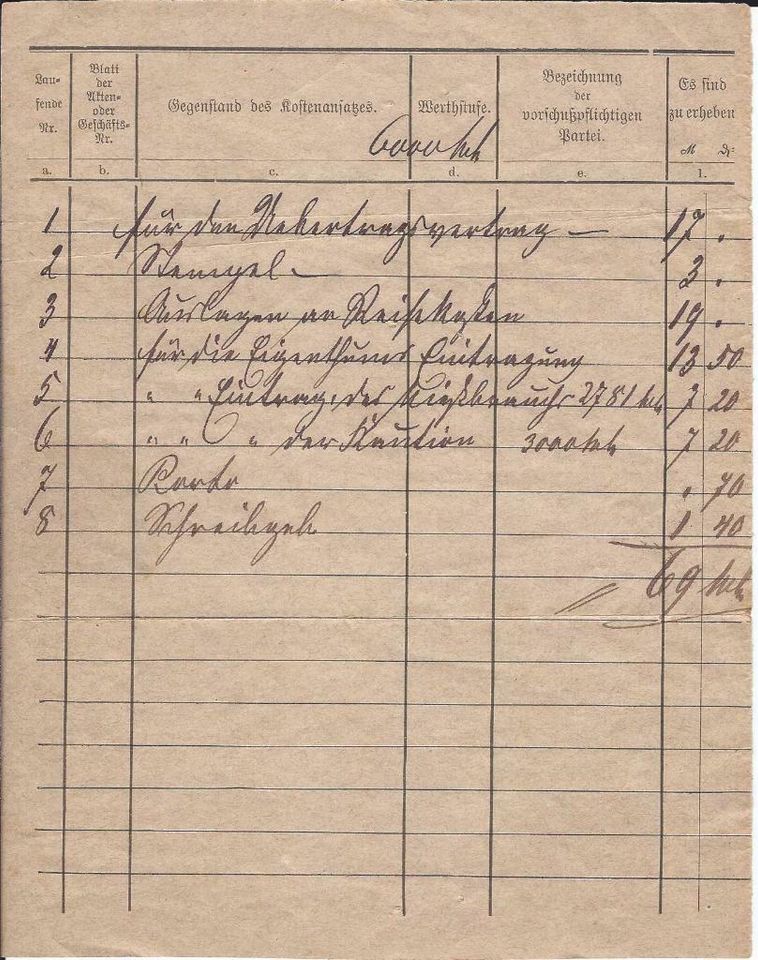 Lau-
fende
Nr.
Blatt
der
Akten-
oder
Geschäfts-
Nr.
Gegenstand des Kostenansatzes.
Werthstufe.
6000 Mk
Bezeichnung
der
vorschußpflichtigen
Partei.
Es sind
zu erheben
M ₰
a. b. c. d. e. l.
1 für den Uebertragsvertrag — 17 .
2 Stempel — 3 .
3 Auslagen an Reisekosten 19 .
4 für die Eigenthums Eintragung 13 50
5 " " Eintrag. des Nießbrauchs 2781 Mk 7 20
6 " " " der Kaution 3000 Mk 7 20
7 Porto . 70
8 Schreibgeb 1 40
69 Mk